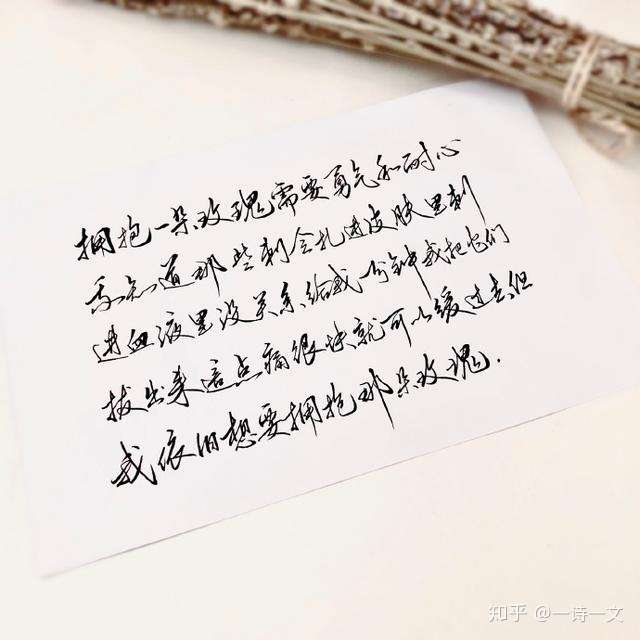 拥抱一朵玫瑰需要勇气和耐心
我知道那些刺会扎进皮肤里刺
进血液里没关系给我一分钟我把它们
拔出来这点痛很快就可以缓过去但
我依旧想要拥抱那朵玫瑰.
知乎 @一诗一文